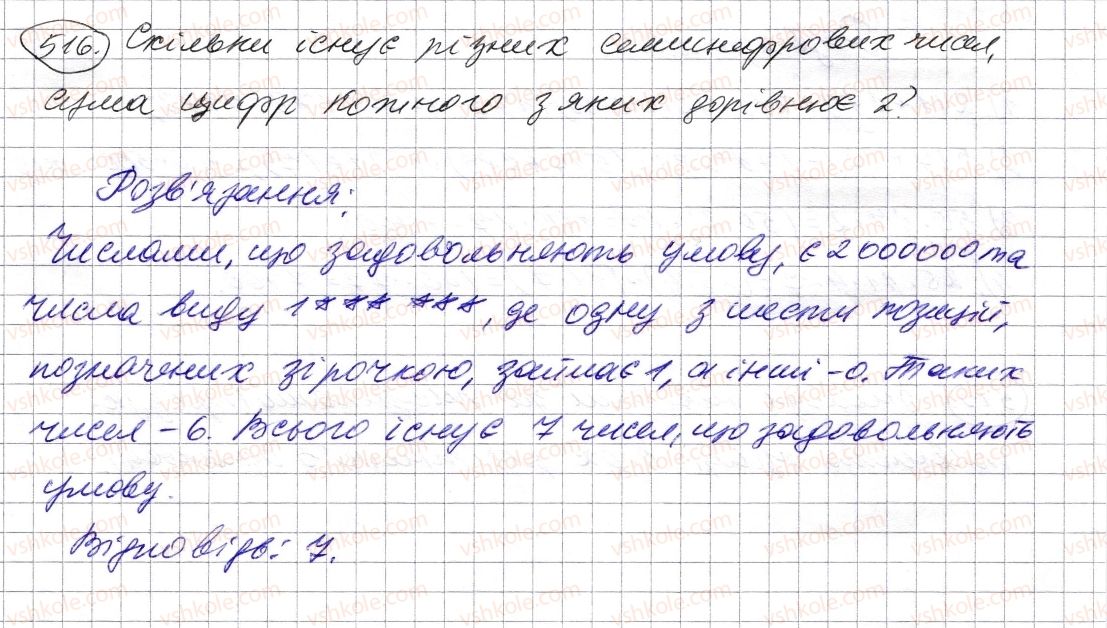 516. Скільки існує різних семицифрових чисел,
сума цифр кожного з яких дорівнює 2?
Розв'язання:
Числами, що задовольняють умову, є 2 000 000 та
числа виду 1*** ***, де одну з шести позицій,
позначених зірочкою, займає 1, а інші - 0. Таких
чисел - 6. Всього існує 7 чисел, що задовольняють
умову.
Відповідь: 7.